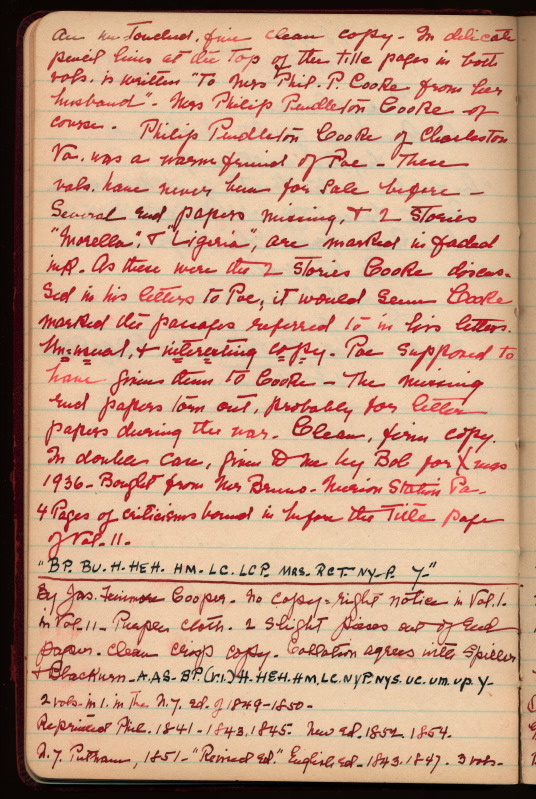 An un-Touched, fine clean copy. In delicate
pencil lines at the top of the title pages in both
vols. is written "To Mrs Phil. P. Cooke from her
husband". Mrs Philip Pendleton Cooke - of
course. Philip Pendleton Cooke of Charleston
Va. was a warm friend of Poe - These
vols. have never been for sale before -
Several end papers missing, & 2 Stories
"Morella", & "Ligeria", are marked in faded
ink. As these were the 2 Stories Cooke discus-
sed in his letters to Poe, it would seem Cooke
marked the passages referred to in his letters.
Unusual & interesting copy. Poe supposed to
have given them to Cooke - The missing
End papers torn out, probably for letter
papers during the war. Clean, firm copy.
In double case, given D me by Bob for Xmas
1936 - Bought from Mrs Bruno - Merion Station Pa.
4 Pages of criticisms bound in before the Title page
of Vol. 11.
"BP. BU. H. HEH. HM - LC. LCP. MRS. RCT. NY. P. Y-"
By Jas. Fenimore Cooper - No copy-right notice in Vol. 1.
in Vol. 11 - Purple cloth. 2 slight pieces out of End
paper. clean crisp copy. Collation agrees with Spiller
& Blackburn - A.AS - BP. (v.1) H. HEH. HM, LC. NYP. NYS. UC. UM. UP. Y-
2 vols. in 1. in the N.Y. ed. of 1849-1850-
Reprinted Phil. 1841 - 1843. 1845. New Ed. 1852. 1854.
N.Y. Putnam, 1851 - "Revised Ed." English ed - 1843. 1847. 3 vols -